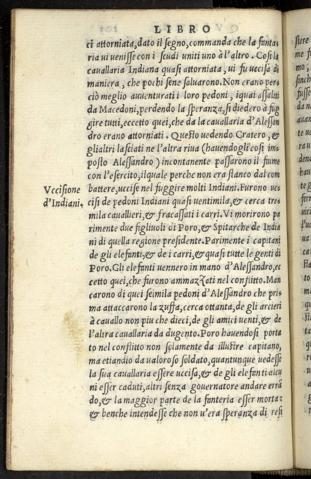 LIBRO
ri attorniata, dato il segno, commanda che la fantaria
ui uenisse con i scudi uniti uno à l'altro. Cosi la
cauallaria Indiana quasi attorniata, ui fu uccisa di
maniera, che pochi sene saluarono. Non erano perciò
meglio auenturati i loro pedoni, iquai assaliti
da Macedoni, perdendo la speranza, si diedero à fuggire
tutti, eccetto quei, che da la cauallaria d'Alessandro
erano attorniati. Questo uedendo Cratero, &
gli altri lasciati ne l'altra riua (hauendogli cosi imposto
Alessandro) incontanente passarono il fiume
con l'esercito, ilquale perche non era stanco dal combattere,
uccise nel fuggire molti Indiani. Furono uccisi
Vccisione
d'Indiani.
de pedoni Indiani quasi uentimila, & cerca tremila
cauallieri, & fracassati i carri. Vi morirono parimente
due figliuoli di Poro, & Spitarche de Indiani
di quella regione presidente. Parimente i capitani
de gli elefanti, & de i carri, & quasi tutte le genti di
Poro. Gli elefanti uennero in mano d'Alessandro, eccetto
quei, che furono ammazzati nel conflitto. Mancarono
di quei seimila pedoni d'Alessandro che prima
attaccarono la zuffa, cerca ottanta, de gli arcieri
à cauallo non piu che dieci, de gli amici uenti, & de
l'altra cauallaria da dugento. Poro hauendosi portato
nel conflitto non solamente da illustre capitano,
ma etiandio da ualoroso soldato, quantunque uedesse
la sua cauallaria essere uccisa, & de gli elefanti alcuni
esser caduti, altri senza gouernatore andare errando,
& la maggior parte de la fanteria esser morta:
& benche intendesse che non u'era speranza di resi